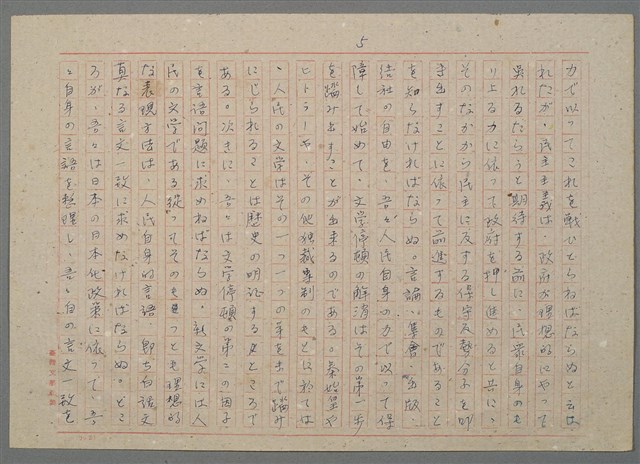 5
力で以ってこれを戦ひとらねばならぬと云は
れたが、民主主義は、政府が理想的にやって
呉れるだらうと期待する前に、民衆自身のも
り上る力に依って政府を押し進めると共に、
そのなかから民主に反する保守反動分子を叩
き出すことに依って前進するものであること
を知らなければならぬ。言論、集会、出版、
結社の自由を、吾々人民自身の力で以って保
障して始めて、文学停頓の解消はその第一歩
を踏み出すことが出来るのである。秦始皇や
ヒトラーや、その他独裁専制のもとに於ては
、人民の文学はその一つ一つの芽をまで踏み
にじられることは歴史の明証するところで
ある。次きに、吾々は文学停頓の第二の因子
を言語問題に求めねばならぬ。新文学には人
民の文学である従ってそのもっとも理想的
な表現方法は、人民自身的言語、即ち白話文
真なる言文一致に求めなければならぬ。どこ
ろが、吾々は日本の日本化政策に依って、吾
々自身の言語を整理し、吾々自の言文一致を